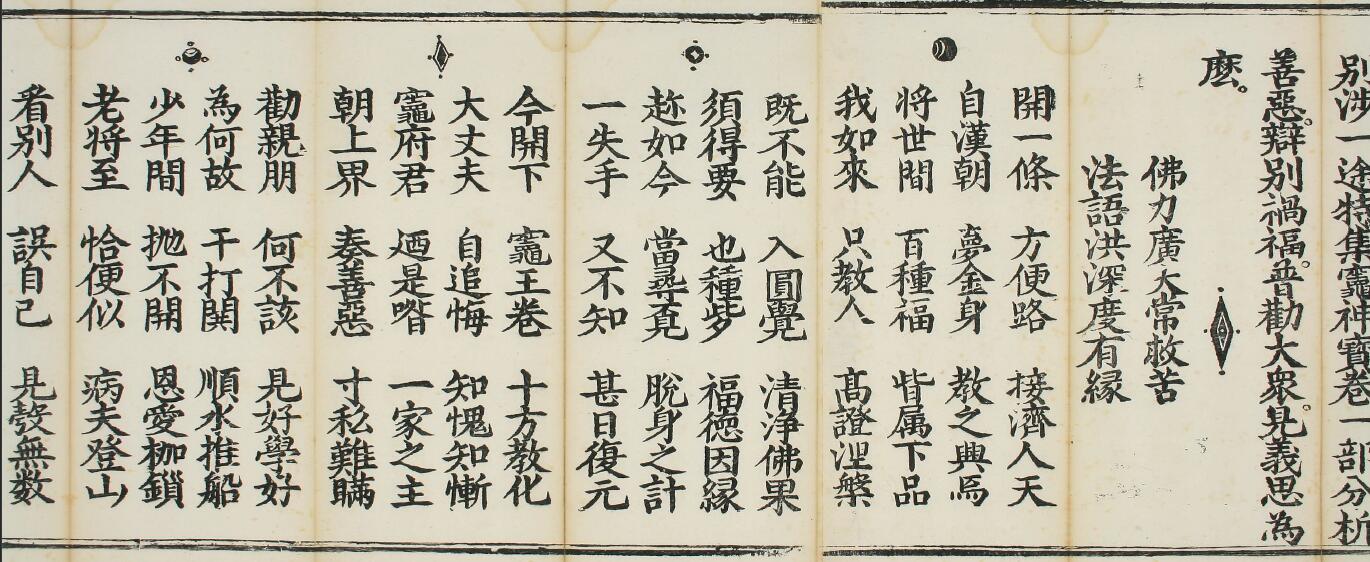 別涉一途特集竈神寶卷一部分析
善惡辯別禍福普勸大衆見義思為
麽。
佛力廣大常救苦
法語洪深度有緣
開一條 方便路 接濟人天
自漢朝 夢金身 教之興焉
將世間 百種福 皆属下品
我如來 只教人 髙證涅槃
既不能 入圓覺 清淨佛果
須得要 也種些 福徳因緣
趂如今 當尋覔 脫身之計
一失手 又不知 甚日復元
今開下 竈王卷 十方教化
大丈夫 自追悔 知愧知慚
竈府君 迺是喒 一家之主
朝上界 奏善惡 寸私難瞞
勸親朋 何不該 見好學好
為何故 干打閧 順水推船
少年間 抛不開 恩愛枷鎖
老將至 恰便似 病夫登山
看別人 誤自己 見彀無数